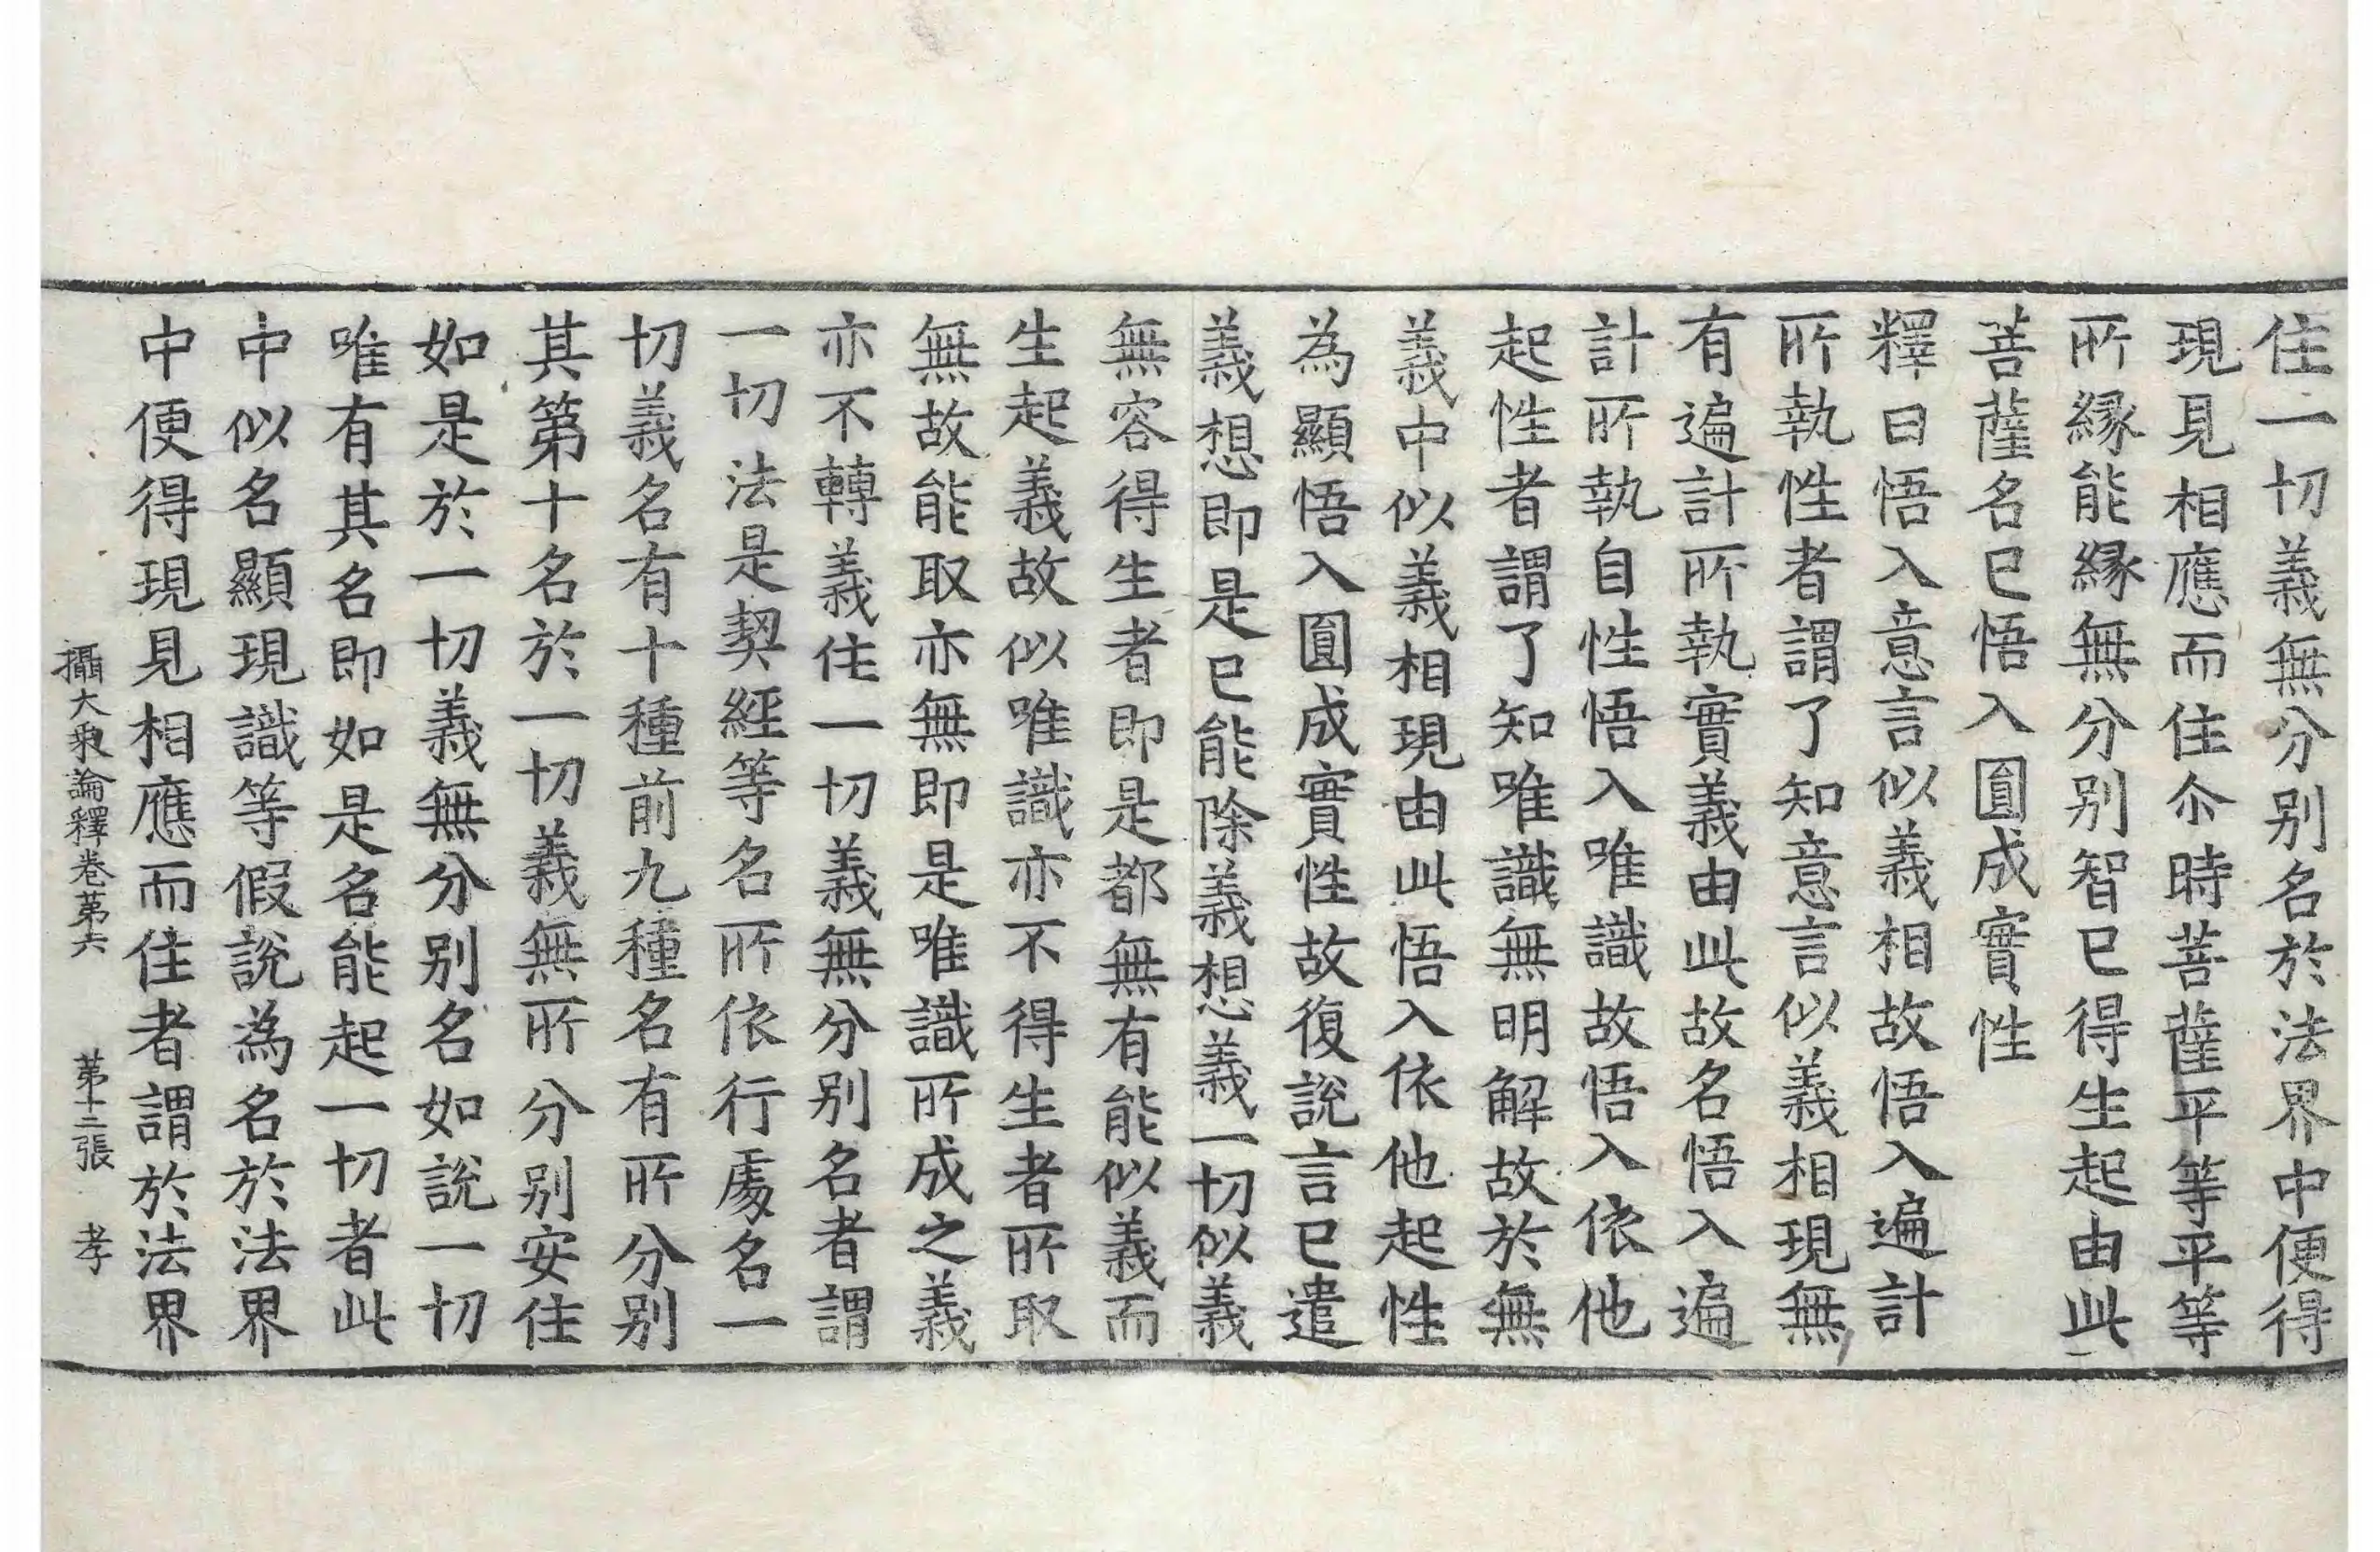 住一切義無分別名於法界中便得
現見相應而住尒時菩薩平等平等
所縁能縁無分別智已得生起由此
菩薩名已悟入圓成實性
釋曰悟入意言似義相故悟入遍計
所執性者謂了知意言似義相現無
有遍計所執實義由此故名悟入遍
計所執自性悟入唯識故悟入依他
起性者謂了知唯識無明解故於無
義中似義相現由此悟入依他起性
為顯悟入圓成實性故復說言已遣
義想即是已能除義想義一切似義
無容得生者即是都無有能似義而
生起義故似唯識亦不得生者所取
無故能取亦無即是唯識所成之義
亦不轉義住一切義無分別名者謂
一切法是契經等名所依行處名一
切義名有十種前九種名有所分別
其第十名於一切義無所分別安住
如是於一切義無分別名如說一切
唯有其名即如是名能起一切者此
中似名顯現識等假說為名於法界
中便得現見相應而住者謂於法界
攝大乗論釋卷第六 第十二張 孝